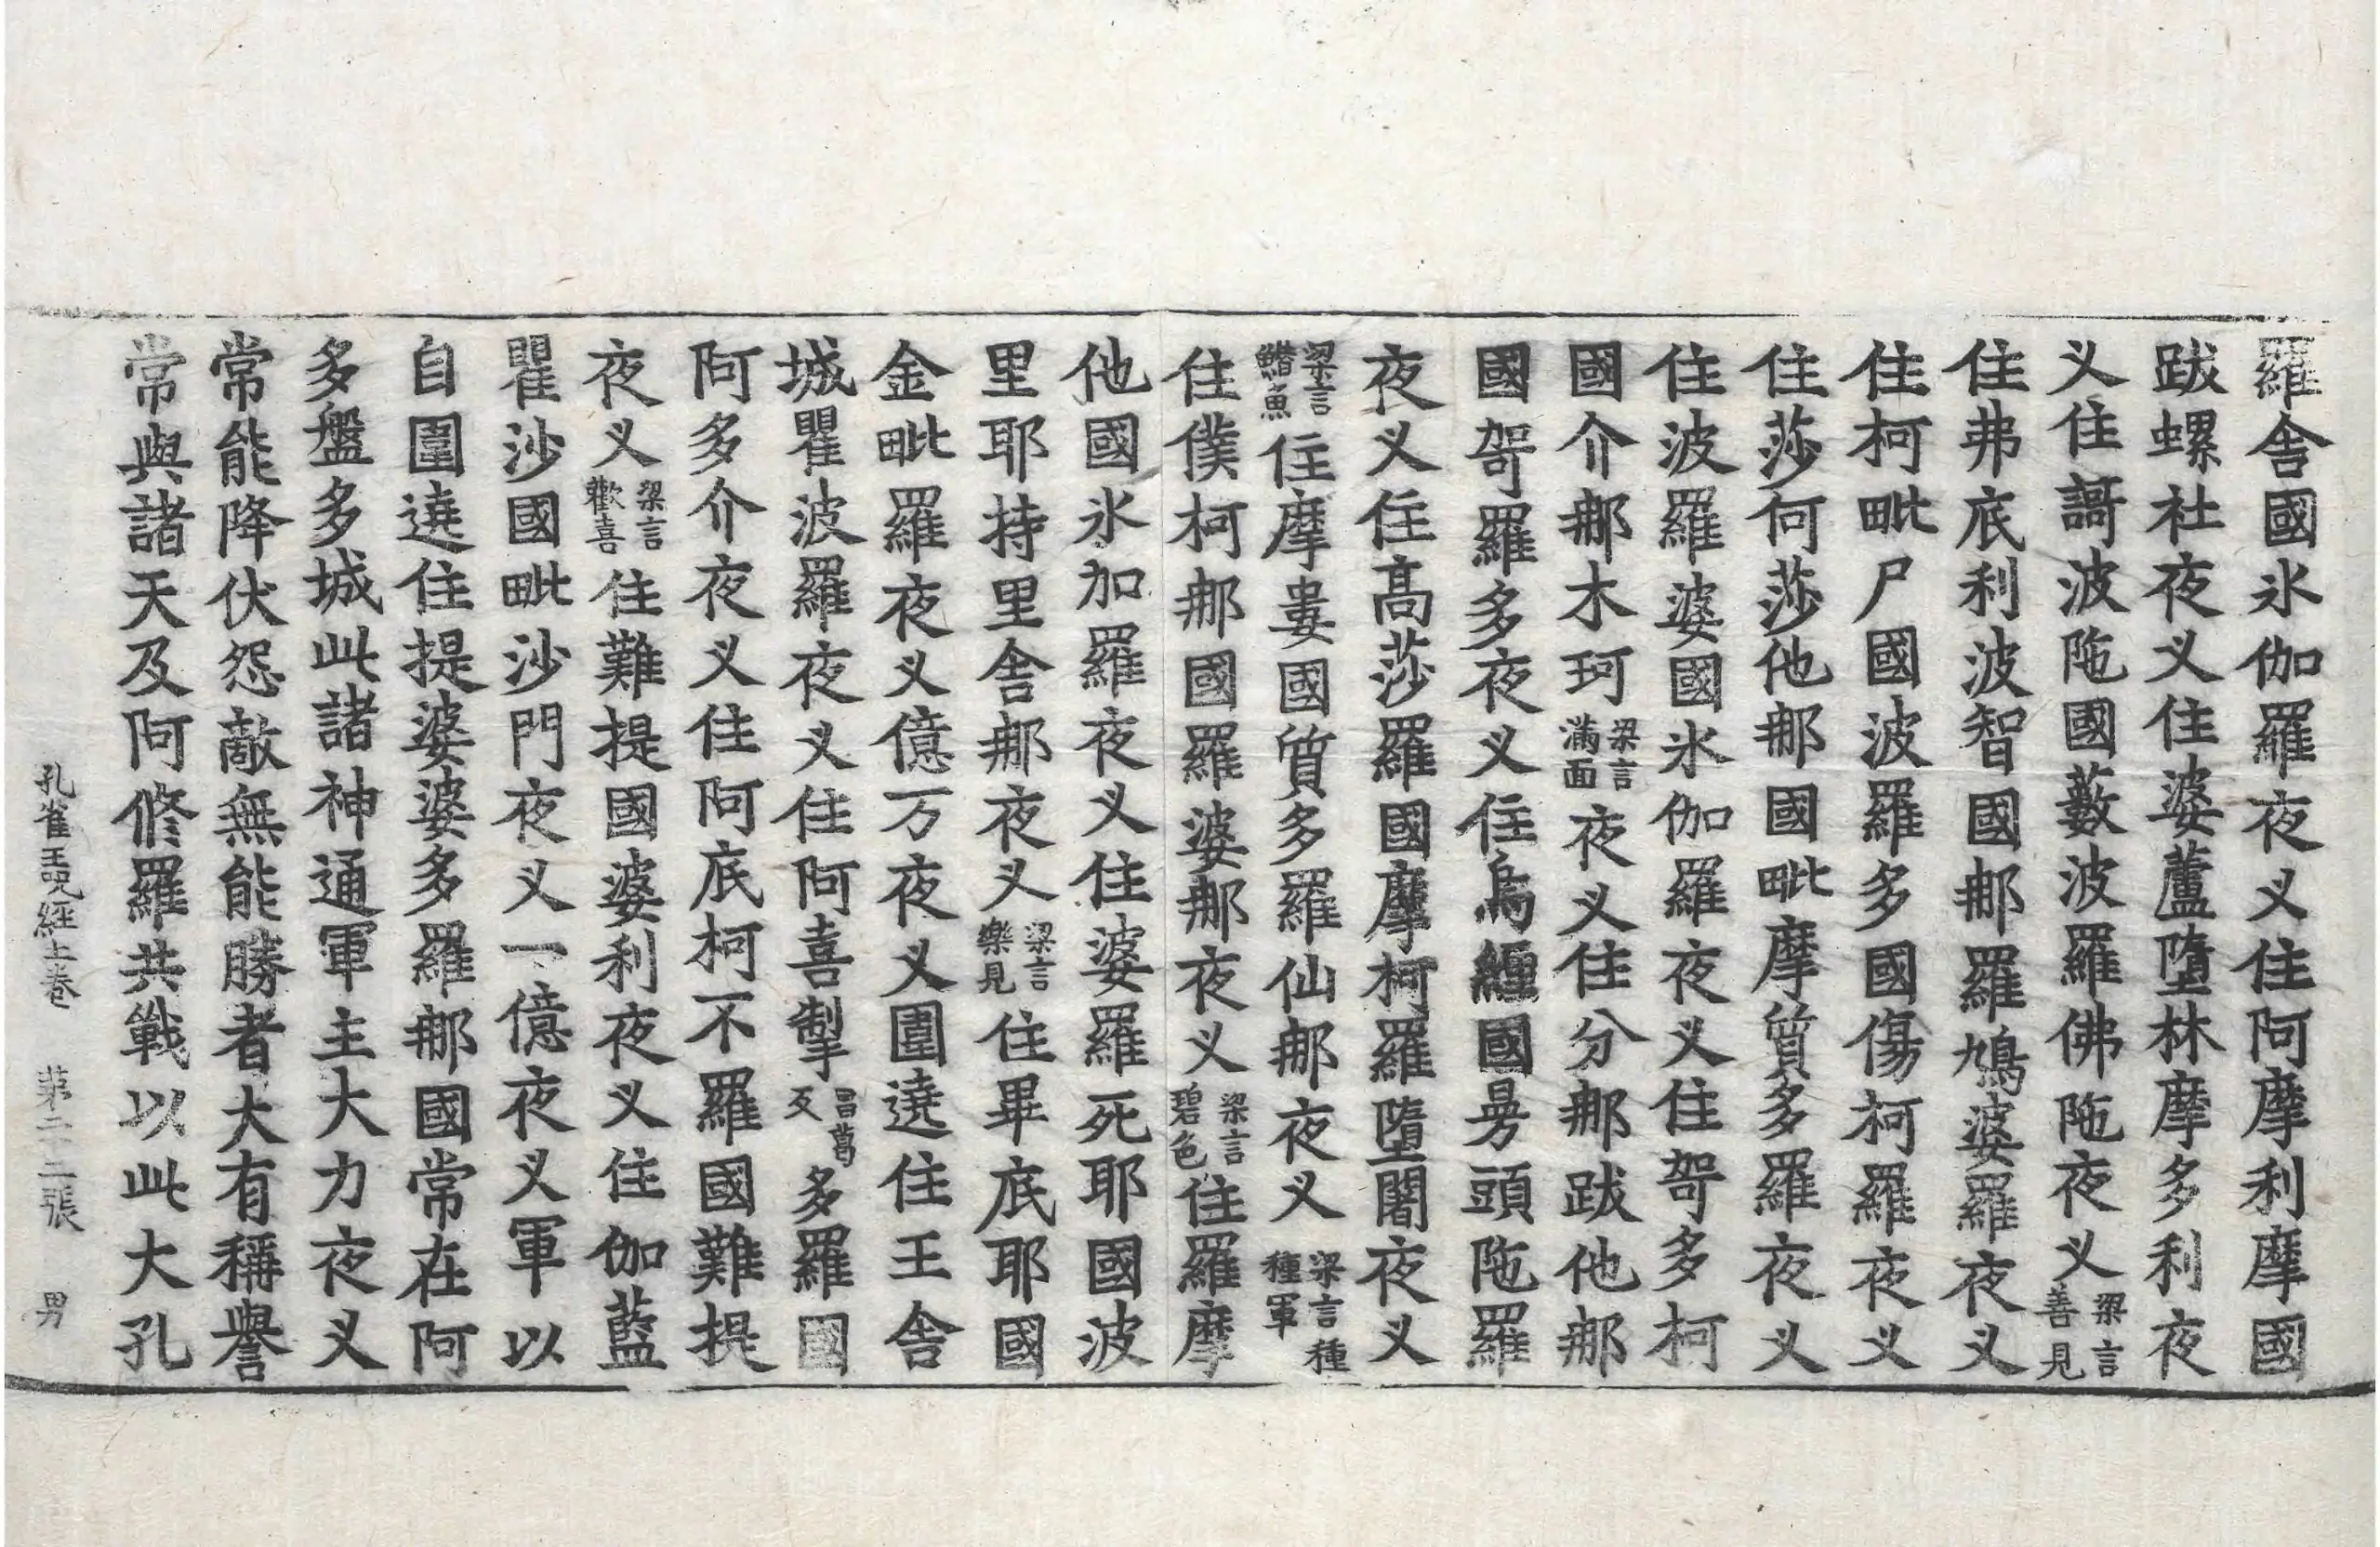 羅舍國氷伽羅夜义住阿摩利摩國
跋螺社夜义住婆蘆墮林摩多利夜
义住謌波陁國藪波羅佛陁夜义梁言善見
住弗底利波智國那羅鳩婆羅夜义
住柯毗尸國波羅多國傷柯羅夜义
住莎何莎他那國毗摩質多羅夜义
住波羅婆國氷伽羅夜义住哿多柯
國介那木珂梁言滿面夜义住分那跋他那
國哿羅多夜义住烏纏國昙頭陁羅
夜义住髙莎羅國摩柯羅墮闍夜义
梁言䱜魚住摩婁國質多羅仙那夜义梁言種種軍
住僕柯那國羅婆那夜义梁言碧色住羅摩
他國氷加羅夜义住婆羅死耶國波
里耶持里舍那夜义梁言樂見住畢底耶國
金毗羅夜义億万夜义圍遶住王舍
城瞿波羅夜义住阿喜掣昌葛反多羅國
阿多介夜义住阿底柯不羅國難提
夜义梁言歡喜住難提國婆利夜义住伽藍
瞿沙國毗沙門夜义一億夜义軍以
自圍遶住提婆婆多羅那國常在阿
多盤多城此諸神通軍主大力夜义
常能降伏怨敵無能勝者大有稱譽
常與諸天及阿修羅共戰以此大孔
孔雀王呪經上卷 苐二十二張 男